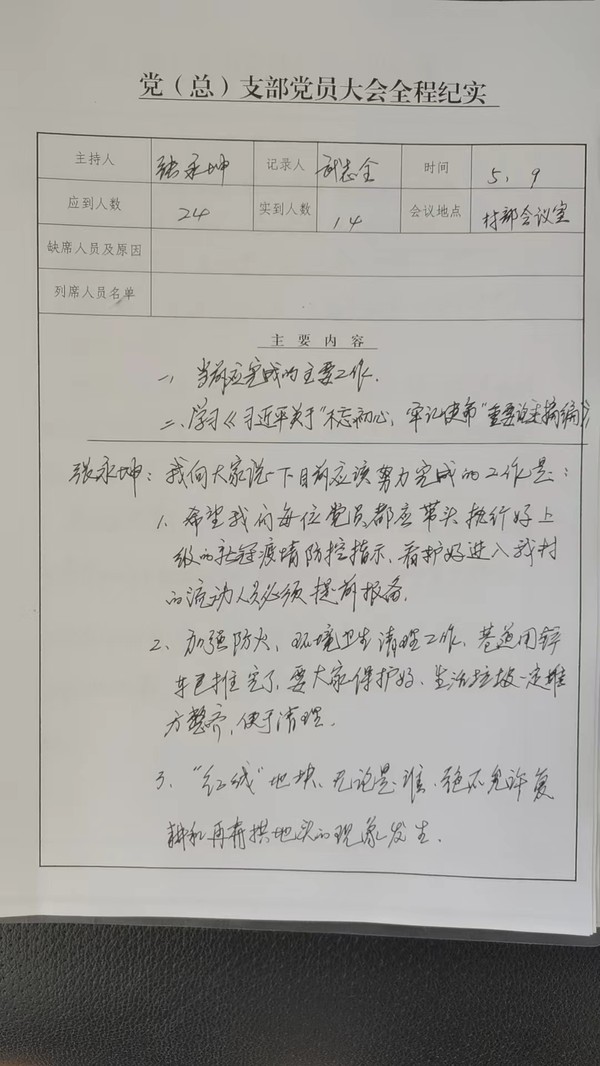 党（总）支部党员大会全程纪实
主持人 张永坤 记录人 志全 时间 5.9
应到人数 24 实到人数 14 会议地点 村部会议室
缺席人员及原因
列席人员名单
主要内容
一、当前应完成的主要工作.
二、学习《习近平关于"不忘初心、牢记使命"重要论述摘编》
张永坤：我向大家说一下目前应该努力完成的工作是：
1、希望我们每位党员都应带头执行好上
级的新冠疫情防控指示、看护好进入我村
的流动人员必须提前报备.
2、加强防火、环境卫生清理工作、巷道用铲
车已推完了、要大家保护好、生活垃圾一定堆
方整齐，便于清理.
3、"红线"地块、无论是谁、绝不允许复
耕和再有拱地头的现象发生.